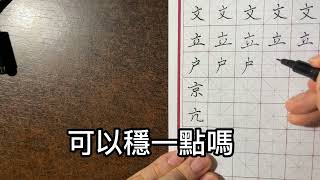 文文文文文
立立立立立
户户户
京
亢
可以穩一點嗎